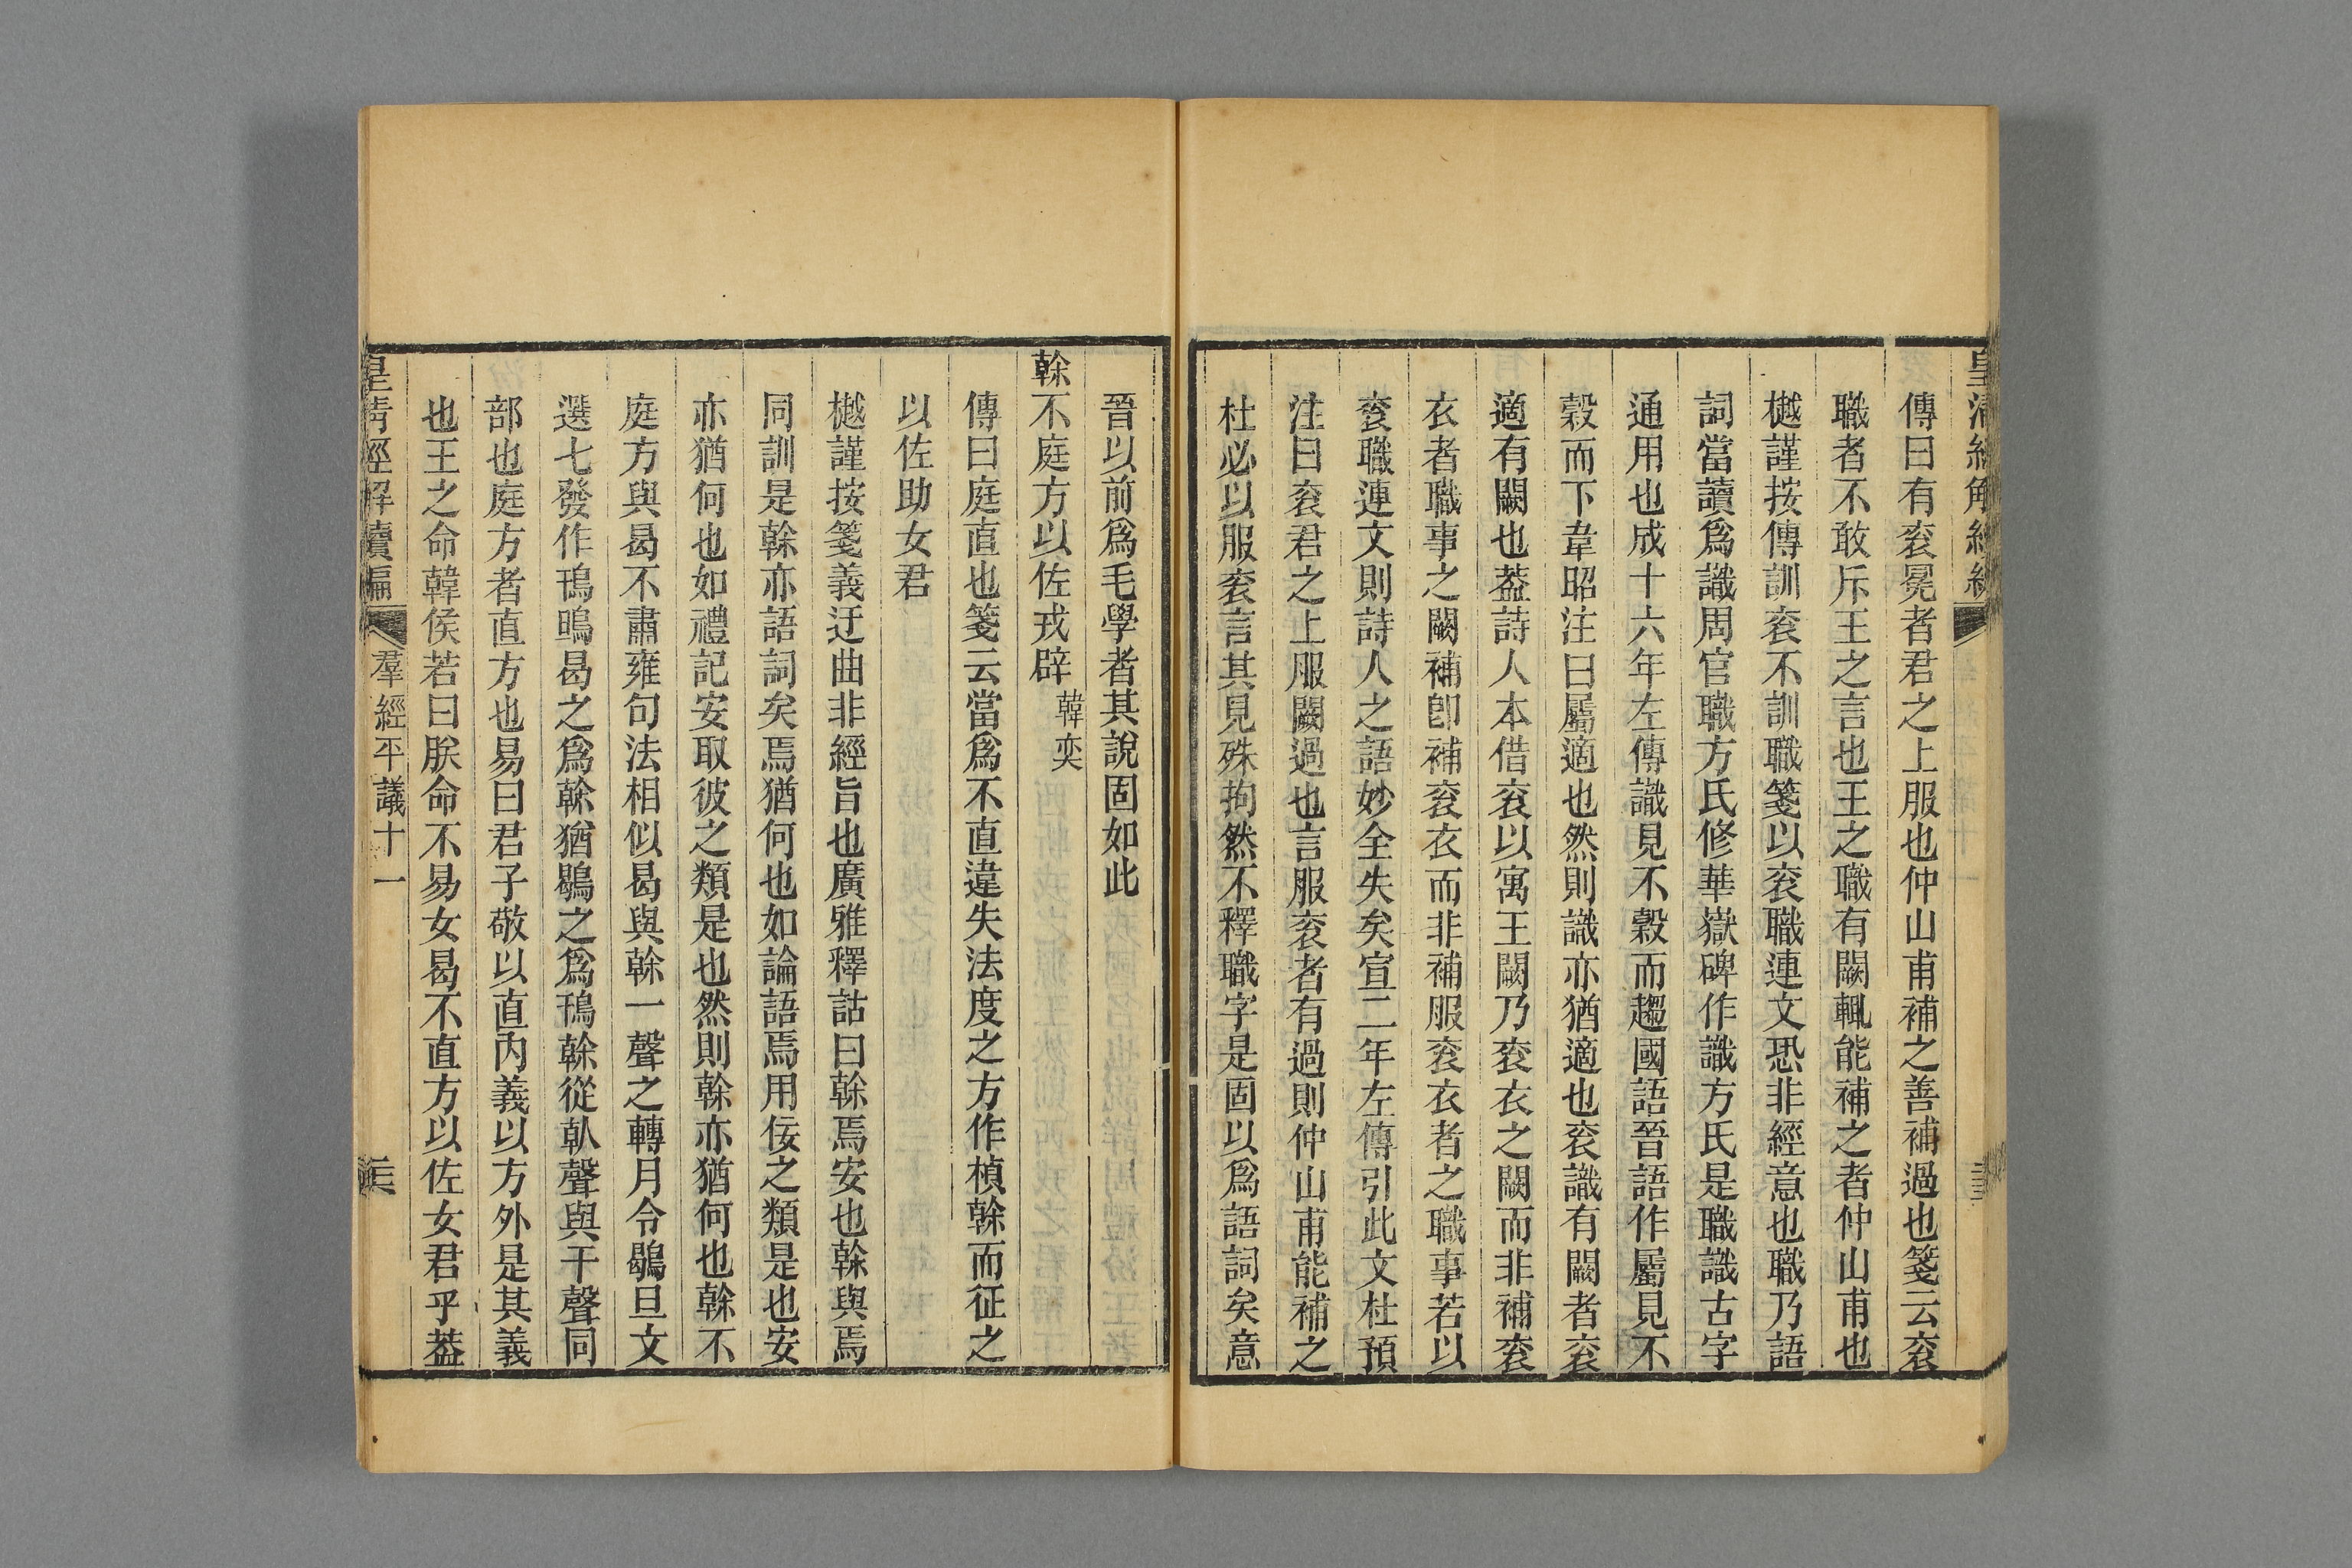 傳曰有衮冕者君之上服也仲山甫補之善補過也箋云衮
職者不敢斥王之言也王之職有闕輒能補之者仲山甫也
樾謹按傳訓衮不訓職箋以衮職連文恐非經意也職乃語
詞當讀爲識周官職方氏修華嶽碑作識方氏是職識古字
通用也成十六年左傳識見不穀而趨國語晉語作屬見不
穀而下韋昭注曰屬適也然則識亦猶適也衮識有闕者衮
適有闕也葢詩人本借衮以寓王闕乃衮衣之闕而非補衮
衣者職事之闕補卽補衮衣而非補服衮衣者之職事若以
衮職連文則詩人之語妙全失矣宣二年左傳引此文杜預
注曰衮君之上服闕過也言服衮者有過則仲山甫能補之
杜必以服衮言其見殊拘然不釋職字是固以爲語詞矣意
晉以前爲毛學者其說固如此
榦不庭方以佐戎辟 韓奕
傳曰庭直也箋云當爲不直違失法度之方作楨榦而征之
以佐助女君
樾謹按箋義迂曲非經旨也廣雅釋詁曰榦焉安也榦與焉
同訓是榦亦語詞矣焉猶何也如論語焉用佞之類是也安
亦猶何也如禮記安取彼之類是也然則榦亦猶何也榦不
庭方與曷不肅雍句法相似曷與榦一聲之轉月令鶡旦文
選七發作鳱鴠曷之爲榦猶鶡之爲鳱榦從倝聲與干聲同
部也庭方者直方也易曰君子敬以直內義以方外是其義
也王之命韓侯若曰朕命不易女曷不直方以佐女君乎葢
皇清經解續編 羣經平議十一